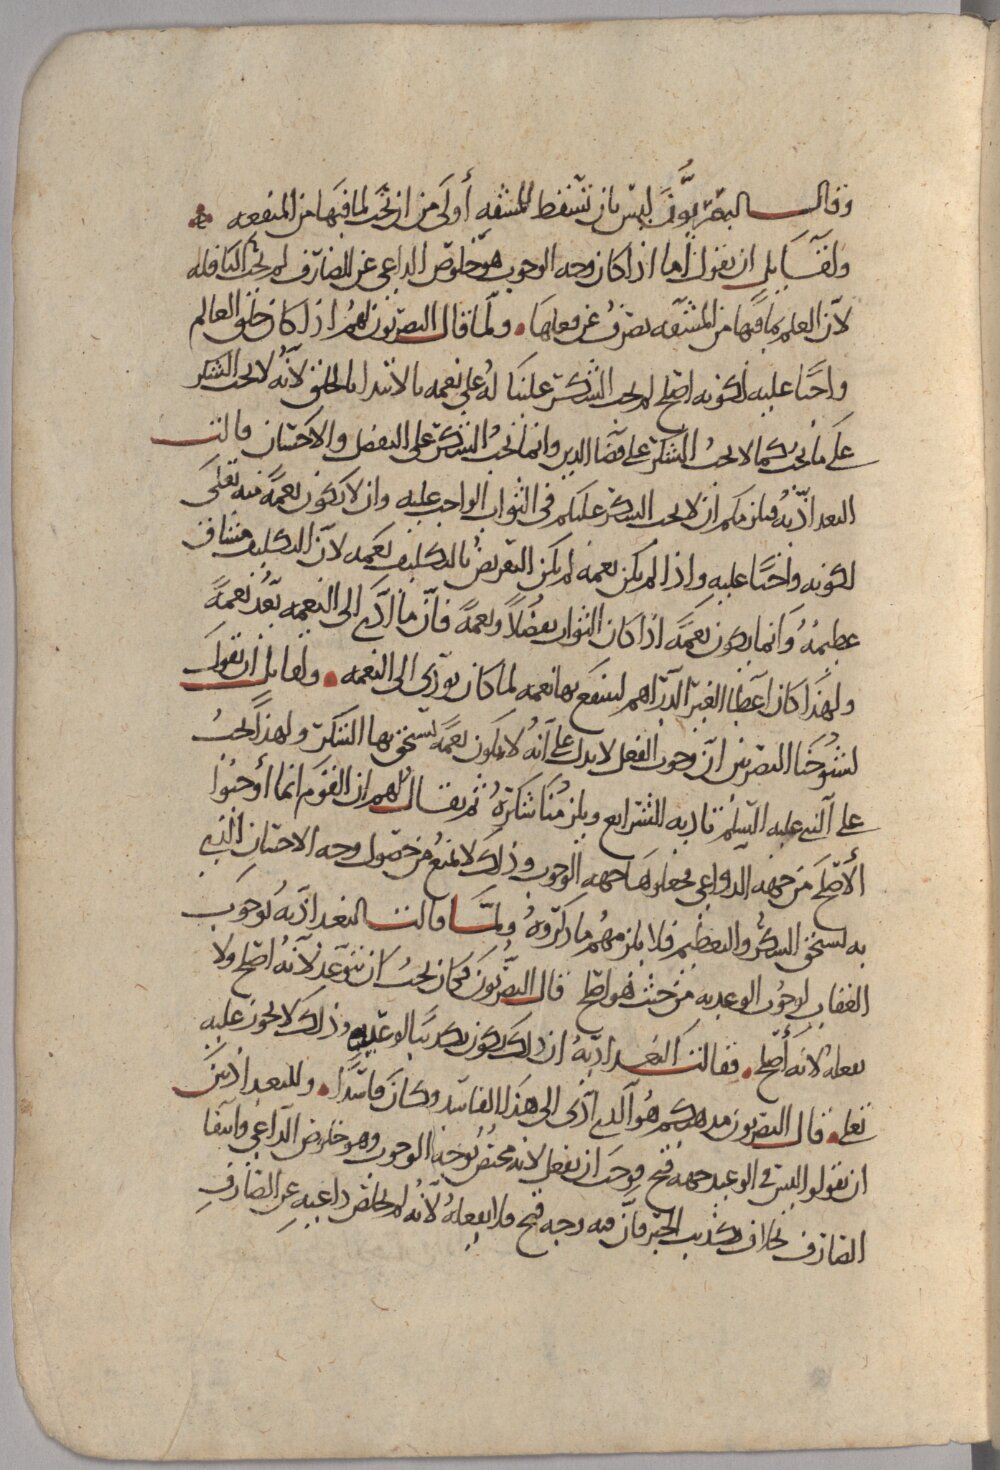 وقال البصريون ليس بان تسقط للمشقه أولى من ان تجب لما فيها من المنفعه
ولقايل ان يقول لهما اذا كان وجه الوجوب هو خلوص الداعى عن الصارف لم تجب النافله
لان العلم بما فيها من المشقه يصرف عن فعلها ولما قال البصريون لهم اذا كان خلق العالم
واجبا عليه لكونه اصلح لم يجب الشكر علينا له على نعمه بالابتدا بالخلق لانه لا يجب الشكر
على ما يجب كما لا يجب الشكر على قضا الدين وانما يجب الشكر على التفضل والاحسان قالت
البغداذيه فيلزمكم ان لا يجب الشكر عليكم فى الثواب الواجب عليه وان لا يكون نعمة منه تعلى
لكونه واجبا عليه واذا لم يكن نعمه لم يكن التعريض بالتكليف نعمه لان التكليف مشاق
عظيمه وانما يكون نعمة اذا كان الثواب تفضلا ونعمة فان ما ادى الى النعمه يعد نعمة
ولهذا كان اعطا الغير الدراهم لينتفع بها نعمه لما كان يؤدى الى النعمه ولقايل ان يقول
لشيوخنا البصريين ان وجوب الفعل لا يدل على انه لا يكون نعمة يستحق بها الشكر ولهذا يجب
على النبى عليه السلم تاديه الشرايع ويلزمنا شكره ثم يقال لهم ان القوم انما أوجبوا
الأصلح من جهه الدواعى فجعلوها جهه الوجوب وذلك لا يمنع من حصول وجه الاحسان الذى
به يستحق الشكر والتعظيم فلا يلزمهم ما ذكروه ولما قالت البغداذيه بوجوب
العقاب لوجوب الوعد به من حيث هو اصلح قال البصريون فكان يجب ان يتوعد لانه اصلح ولا
يفعله لانه أصلح فقالت البغداديه ان ذلك يكون تكذيبا لوعيده وذلك لا يجوز عليه
تعلى قال البصريون مذهبكم هو الذى ادى الى هذا الفاسد وكان فاسدا وللبغداذيين
ان يقولوا ليس فى الوعيد جهه قبح فوجب ان يفعل لانه مختص بوجه الوجوب وهو خلوص الداعى وانتفا
الصارف بخلاف تكذيب الخبر فان فيه وجه قبح فلا يفعله لانه لم يخلص داعيه عن الصارف